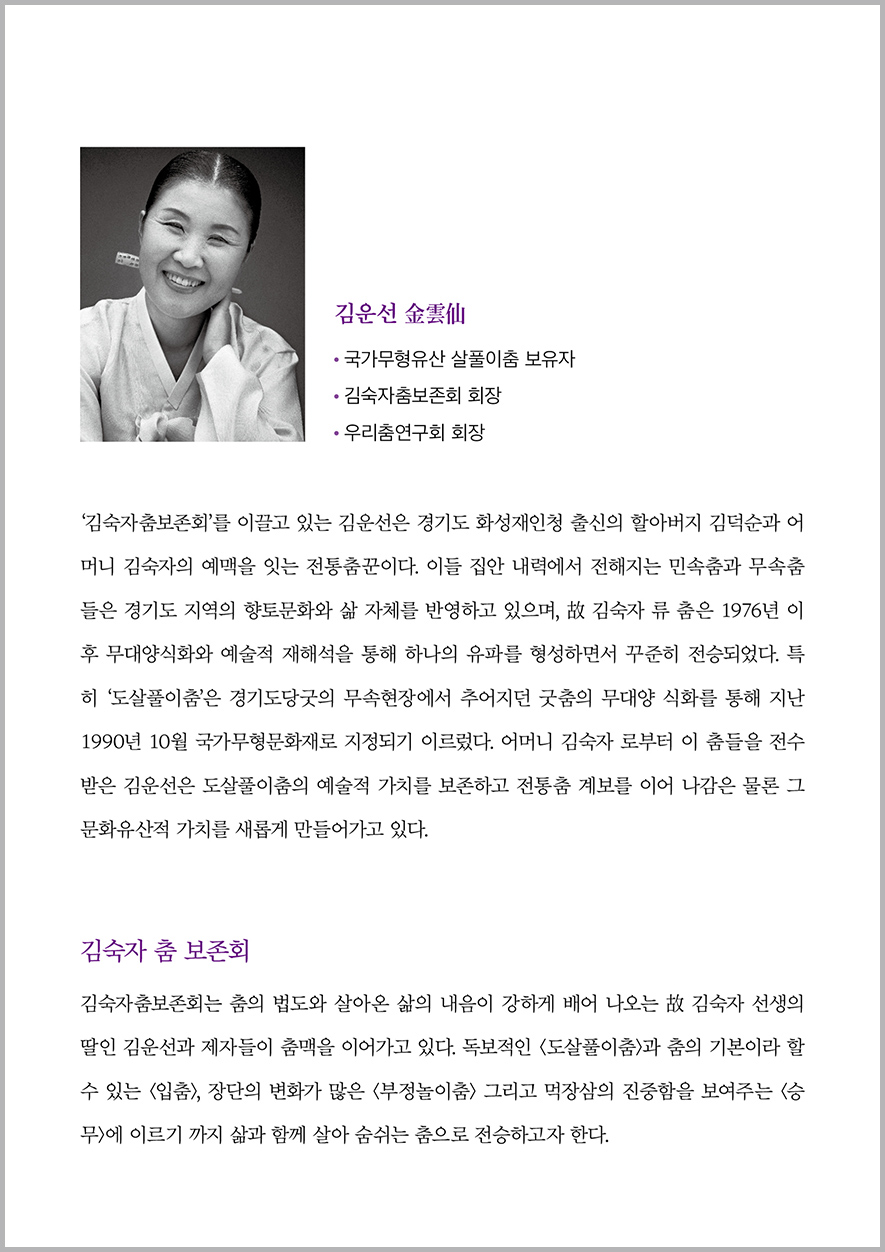 김운선 金雲仙
• 국가무형유산 살풀이춤 보유자
• 김숙자춤보존회 회장
• 우리춤연구회 회장
‘김숙자춤보존회’를 이끌고 있는 김운선은 경기도 화성재인청 출신의 할아버지 김덕순과 어
머니 김숙자의 예맥을 잇는 전통춤꾼이다. 이들 집안 내력에서 전해지는 민속춤과 무속춤
들은 경기도 지역의 향토문화와 삶 자체를 반영하고 있으며, 故 김숙자 류 춤은 1976년 이
후 무대양식화와 예술적 재해석을 통해 하나의 유파를 형성하면서 꾸준히 전승되었다. 특
히 ‘도살풀이춤’은 경기도당굿의 무속현장에서 추어지던 굿춤의 무대양 식화를 통해 지난
1990년 10월 국가무형문화재로 지정되기 이르렀다. 어머니 김숙자 로부터 이 춤들을 전수
받은 김운선은 도살풀이춤의 예술적 가치를 보존하고 전통춤 계보를 이어 나감은 물론 그
문화유산적 가치를 새롭게 만들어가고 있다.
김숙자 춤 보존회
김숙자춤보존회는 춤의 법도와 살아온 삶의 내음이 강하게 배어 나오는 故 김숙자 선생의
딸인 김운선과 제자들이 춤맥을 이어가고 있다. 독보적인 〈도살풀이춤〉과 춤의 기본이라 할
수 있는 〈입춤〉, 장단의 변화가 많은 〈부정놀이춤〉 그리고 먹장삼의 진중함을 보여주는 〈승
무〉에 이르기 까지 삶과 함께 살아 숨쉬는 춤으로 전승하고자 한다.